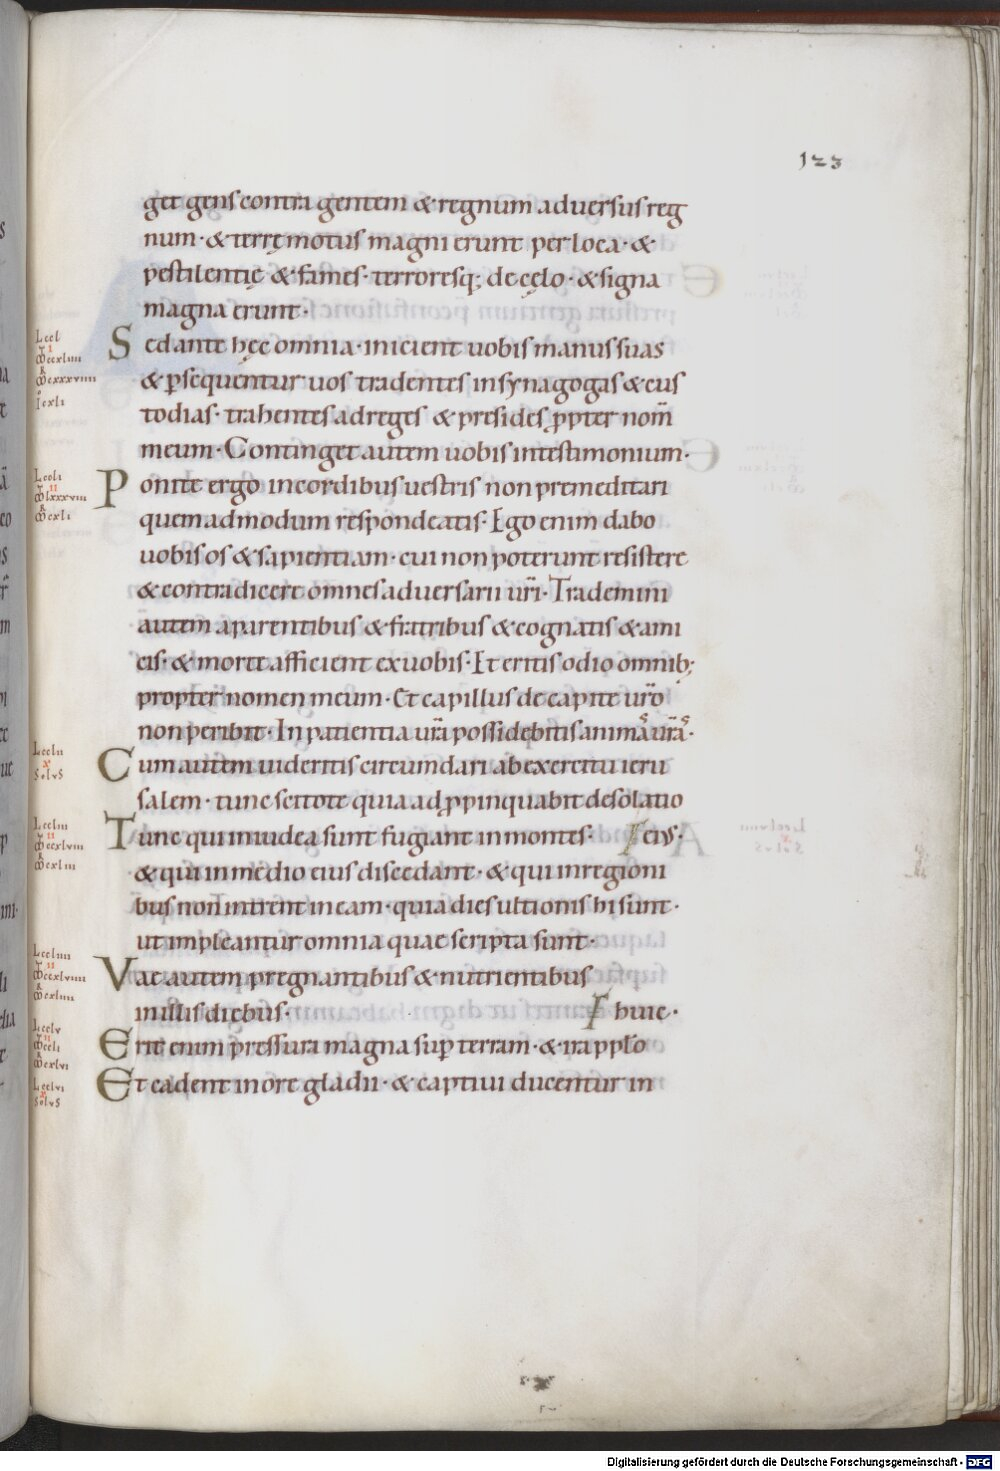 123
get gens contra gentem & regnum aduersus reg
num · & terrę motus magni erunt per loca · &
pestilentię & fames · terroresq; de cęlo · & signa
magna erunt ·
Sed ante hęc omnia · inicient uobis manus suas
& ꝑsequentur uos tradentes in synagogas & cus
todias · trahentes ad reges & presides ꝓpter nom̄
meum · Continget autem uobis in testimonium ·
Ponite ergo in cordibus uestris non premeditari
quemadmodum respondeatis · Ego enim dabo
uobis os & sapientiam · cui non poterunt resistere
& contradicere omnes aduersarii ur̄i · Trademini
autem a parentibus & fratribus & cognatis & ami
cis · & morte afficient ex uobis · Et eritis odio omnib;
propter nomen meum · Et capillus de capite ur̄o
non peribit · In patientia ur̄a possidebitis animas ur̄as ·
Cum autem uideritis circumdari ab exercitu ieru
salem · tunc scitote quia adꝓpinquabit desolatio
Tunc qui in iudea sunt fugiant in montes · eius ·
& qui in medio eius discedant · & qui in regioni
bus non intrent in eam · quia dies ultionis hi sunt ·
ut impleantur omnia quae scripta sunt ·
Vae autem pregnantibus & nutrientibus
in illis diebus · huic ·
Erit enim pressura magna sup̄ terram · & ira pplo
Et cadent in ore gladii · & captiui ducentur in
Digitalisierung gefördert durch die Deutsche Forschungsgemeinschaft - DFG